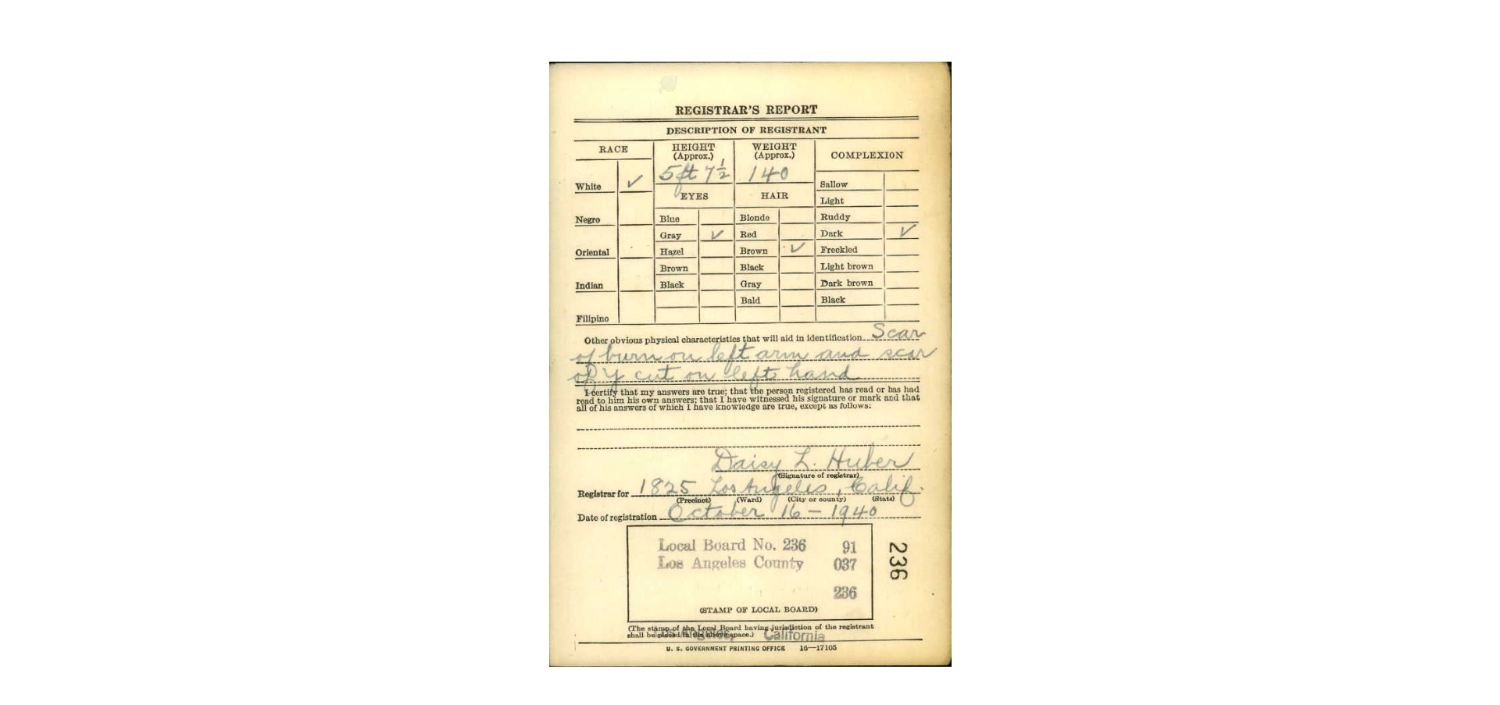 REGISTRAR'S REPORT
DESCRIPTION OF REGISTRANT
RACE
HEIGHT (Approx.)
WEIGHT (Approx.)
COMPLEXION
5 ft 7½
140
White ✓
Sallow
EYES
HAIR
Light
Negro
Blue
Blonde
Ruddy
Gray ✓
Red
Dark ✓
Oriental
Hazel
Brown ✓
Freckled
Brown
Black
Light brown
Indian
Black
Gray
Dark brown
Bald
Black
Filipino
Other obvious physical characteristics that will aid in identification Scar
of burn on left arm and scar
of cut on left hand
I certify that my answers are true; that the person registered has read or has had
read to him his own answers; that I have witnessed his signature or mark and that
all of his answers of which I have knowledge are true, except as follows:
Daisy L. Huber
(Signature of registrar)
Registrar for 1825 Los Angeles, Calif.
(Precinct) (Ward) (City or county) (State)
Date of registration October 16 - 1940
Local Board No. 236 91
Los Angeles County 037
236
236
(STAMP OF LOCAL BOARD)
(The stamp of the Local Board having jurisdiction of the registrant
shall be placed in the above space.)
California
U. S. GOVERNMENT PRINTING OFFICE 16—17105